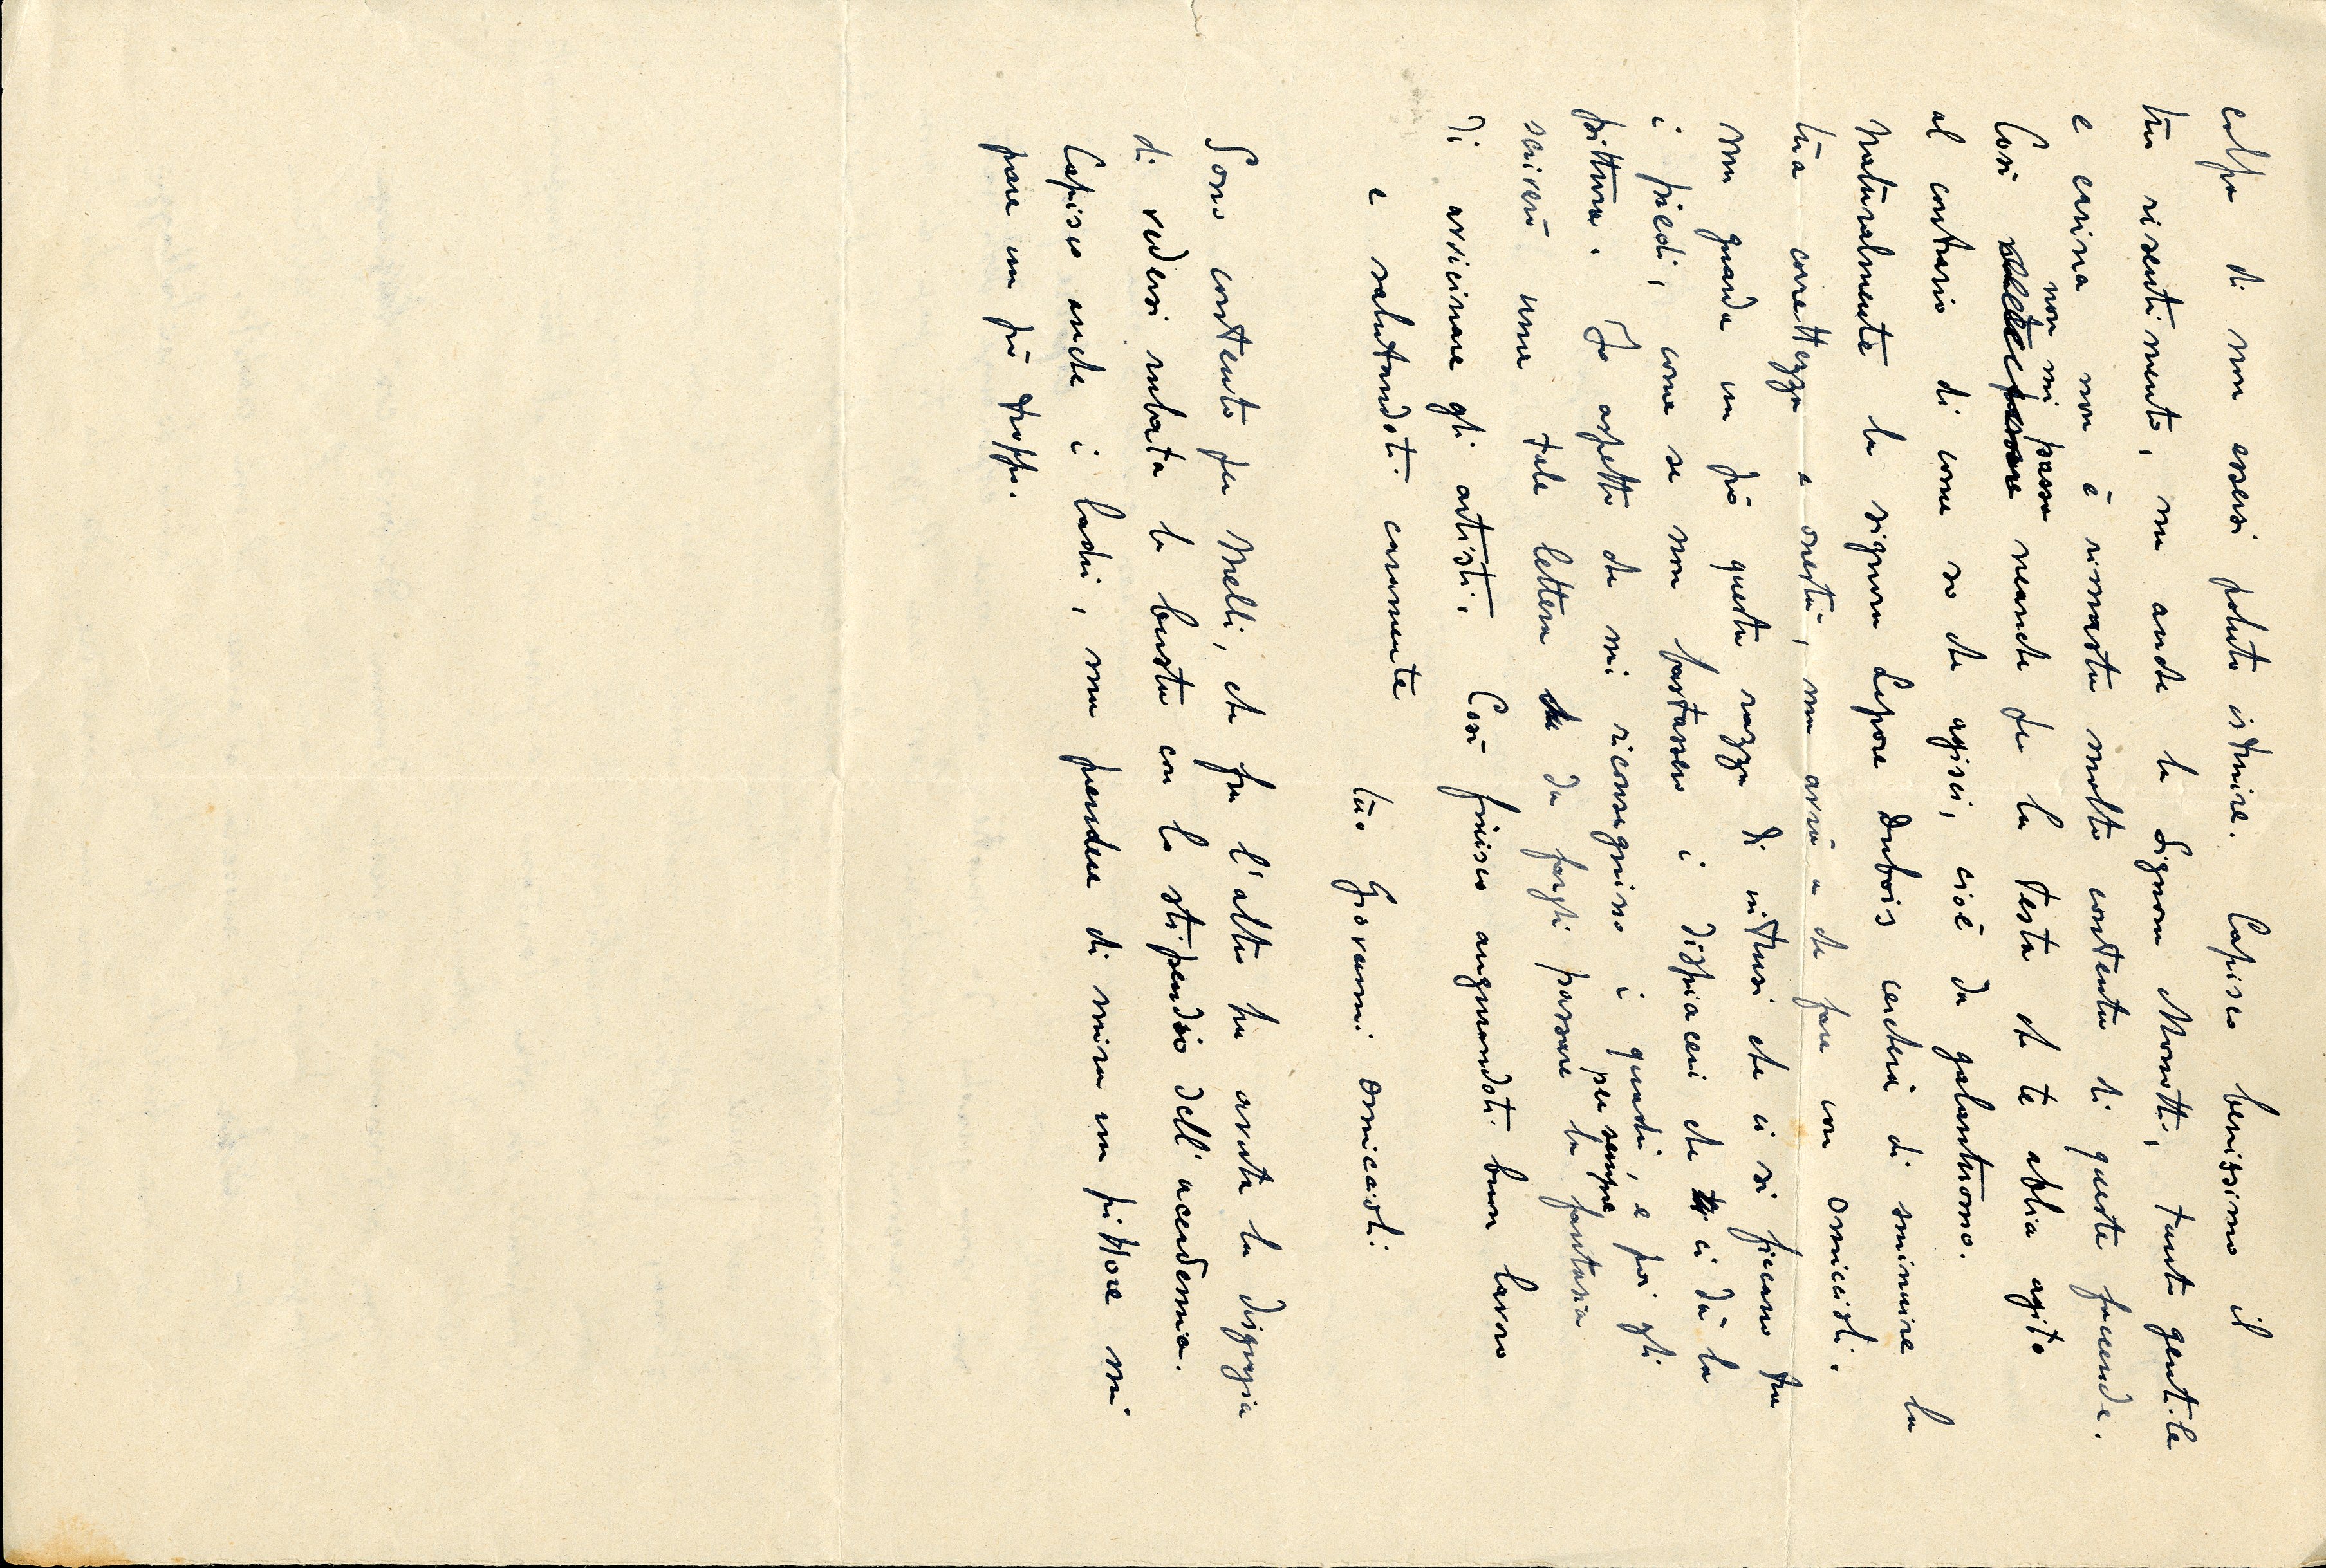 colpa di non essersi potuto istruire. Capisco benissimo il
tuo risentimento, ma anche la Signora Monotti, tanto gentile
e carina non è rimasta molto contenta di queste faccende.
non mi passa
Così neanche per la testa che te abbia agito
al contrario di come so che agisci, cioè da galantuomo.
Naturalmente la signora Lepore Dubois cercherà di sminuire la
tua correttezza e onestà, ma avrà a che fare con Omiccioli.
Ma guarda un pò questa razza di intrusi che ci si ficcano tra
i piedi, come se non bastassero i dispiaceri che ci dà la
pittura. Io aspetto che mi riconsegnino i quadri, e poi gli
scriverò una tale lettera da fargli passare per sempre la fantasia
di avvicinare gli artisti. Così finisco augurandoti buon lavoro
e salutandoti caramente
tuo Giovanni Omiccioli
Sono contento per Melli, che fra l'altro ha avuta la disgrazia
di vedersi rubata la busta con lo stipendio dell'accademia.
Capisco anche i ladri, ma prendere di mira un pittore mi
pare un pò troppo.